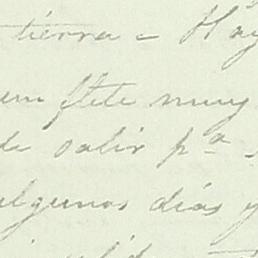 tierra = Hay
un flete muy
de salir pª
algunos días y